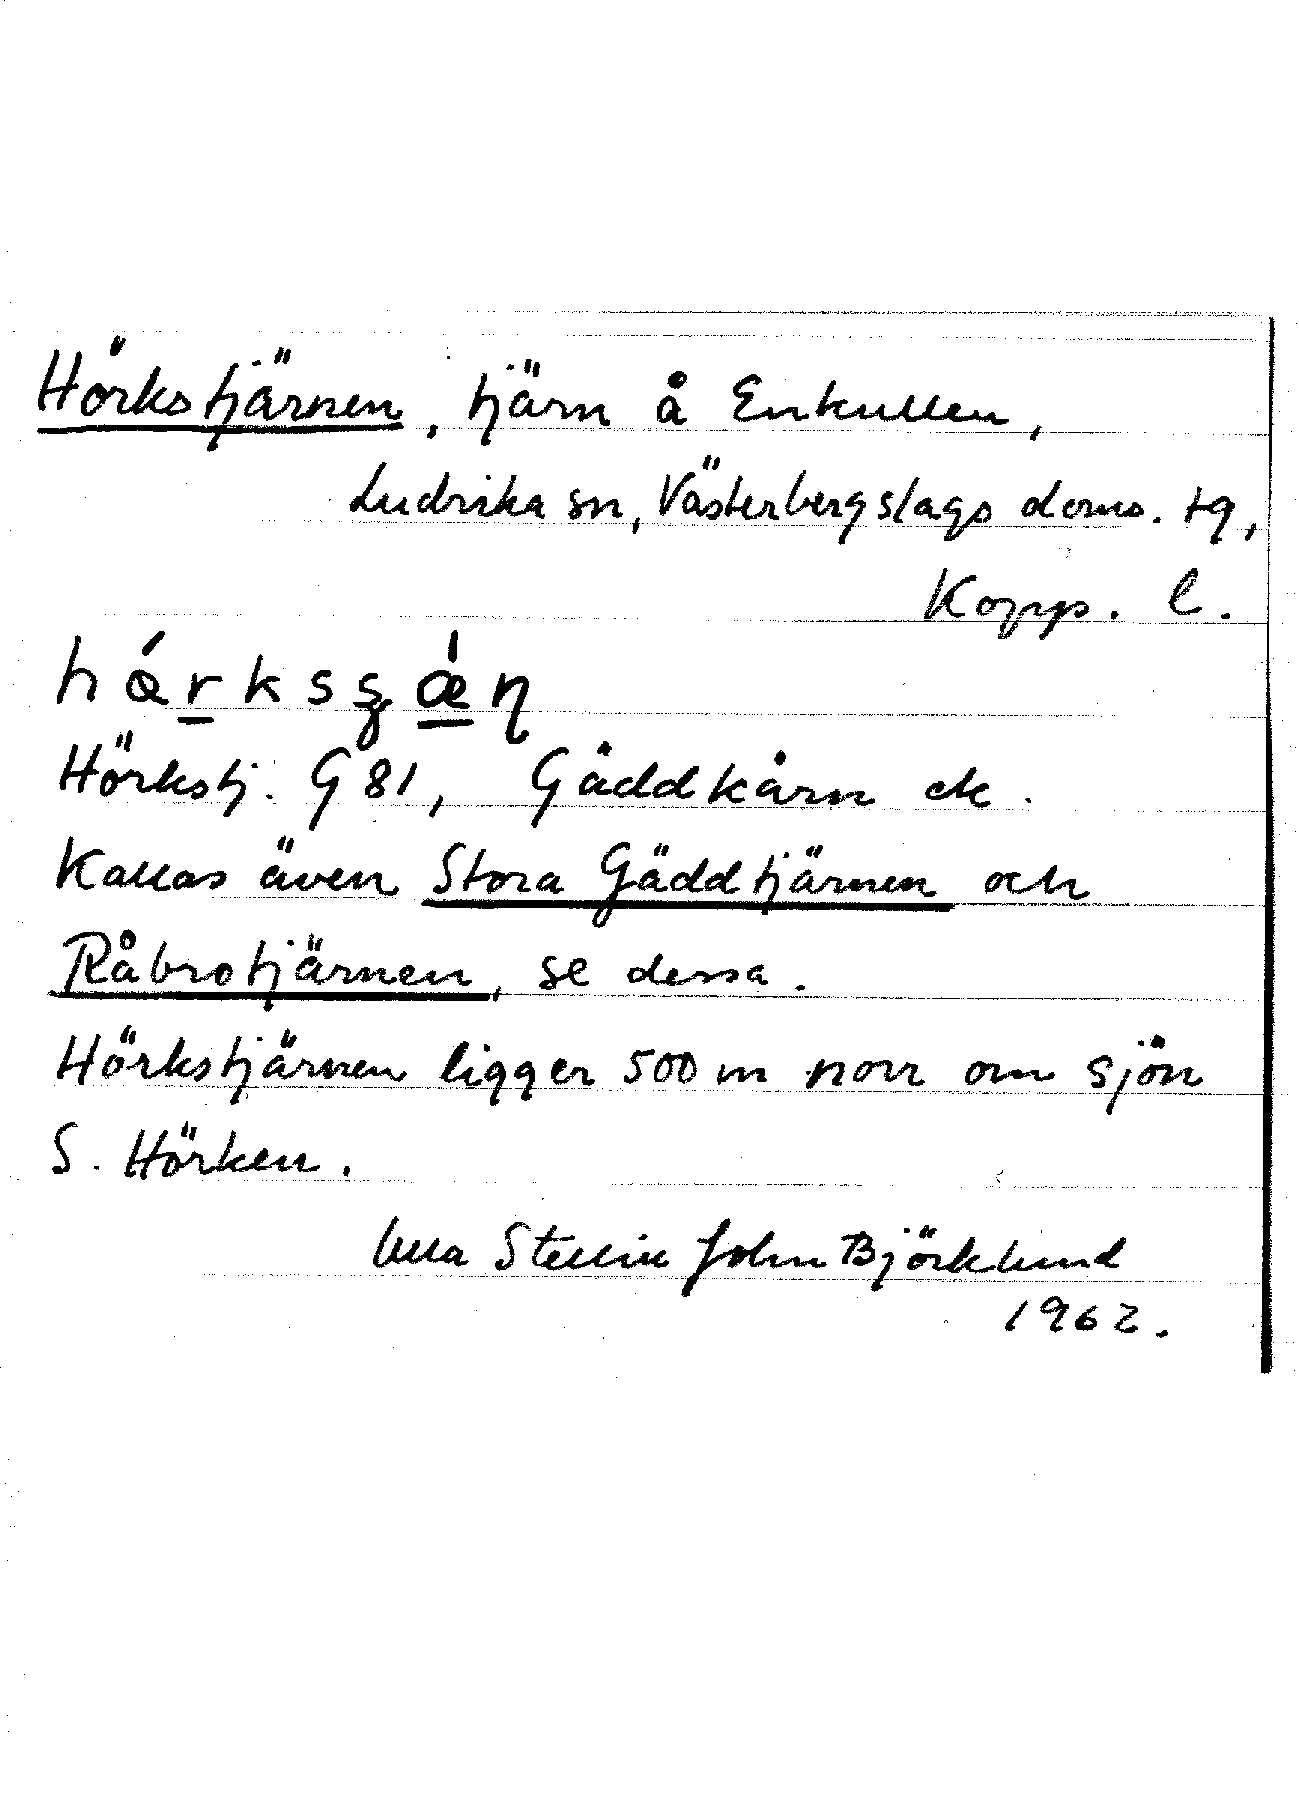 Hörkstjärnen, tjärn å Enkullen,
Ludvika sn, Västerbergslags doms. tg,
Kopp. l.
Hörkstj. G 81, Gåddkårn ek.
Kallas även Stora Gäddtjärnen och
Råbrotjärnen, se dessa.
Hörkstjärnen ligger 500 m norr om sjön
S. Hörken.
Ulla Stellin John Björklund
1962.